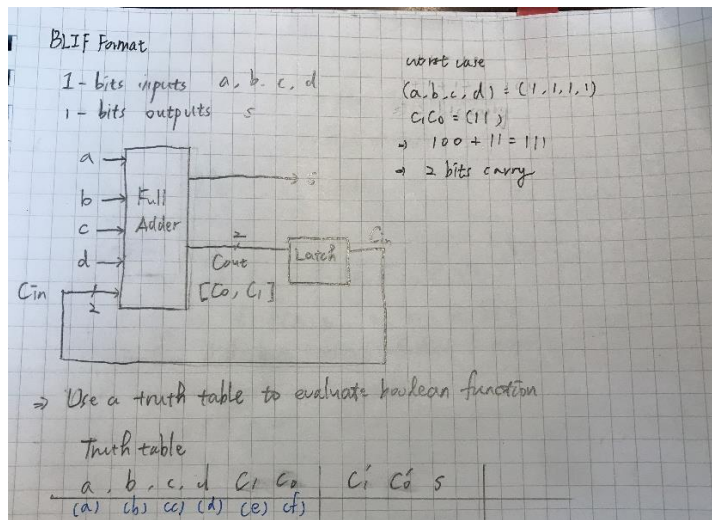 BLIF Format
1-bits inputs a, b, c, d
1-bits outputs s
worst case
(a,b,c,d) = (1,1,1,1)
C₁C₀ = (11)
⇒ 100 + 11 = 111
⇒ 2 bits carry
a
b
c
d
Cin
2
Full
Adder
s
2
Cout
[C₀, C₁]
Latch
⇒ Use a truth table to evaluate boolean function
Truth table
a, b, c, d C₁ C₀ C₁' C₀' s
(a) (b) (c) (d) (e) (f)